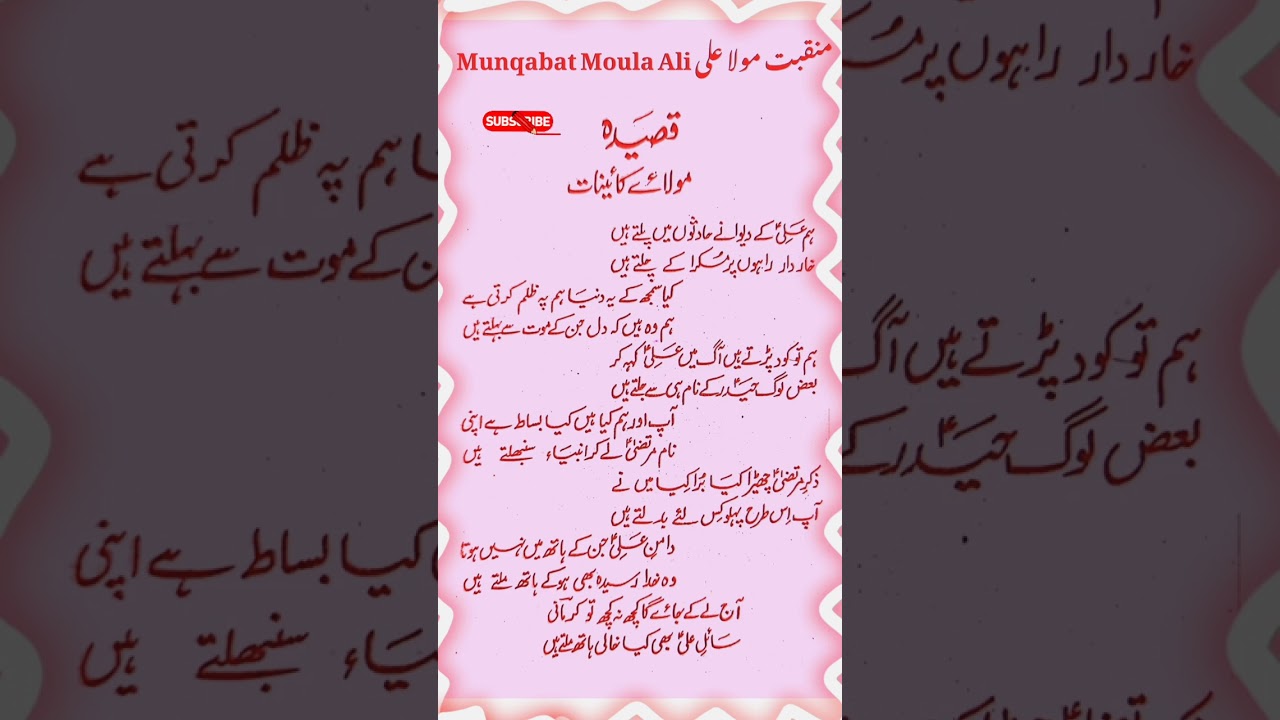 منقبت مولا علی Munqabat Moula Ali
SUBSCRIBE
قصیدہ
مولائے کائینات
ہم علیؑ کے دیوانے حادثوں میں پلتے ہیں
خاردار راہوں پر مُسکرا کے چلتے ہیں
کیا سمجھ کے یہ دنیا ہم پہ ظلم کرتی ہے
ہم وہ ہیں کہ دل جن کے موت سے بہلتے ہیں
ہم تو کود پڑتے ہیں آگ میں علیؑ کہہ کر
بعض لوگ حیدرؑ کے نام ہی سے جلتے ہیں
آپ اور ہم کیا ہیں کیا بساط ہے اپنی
نام مرتضیٰؑ لے کر انبیاء سنبھلتے ہیں
ذکرِ مرتضیٰؑ چھیڑا کیا بُرا کِیا میں نے
آپ اِس طرح پہلو کِس لئے بدلتے ہیں
دامنِ علیؑ جن کے ہاتھ میں نہیں ہوتا
وہ خدا رسیدہ بھی ہو کے ہاتھ ملتے ہیں
آج لے کے جائے گا کچھ نہ کچھ تو کرمانی
سائلِ علیؑ بھی کیا خالی ہاتھ ملتے ہیں
خاردار راہوں پر مُس
ا ہم پہ ظلم کرتی ہے
ن کے موت سے بہلتے ہیں
ہم تو کود پڑتے ہیں آگ
بعض لوگ حیدرؑ کے
کیا بساط ہے اپنی
یاء سنبھلتے ہیں